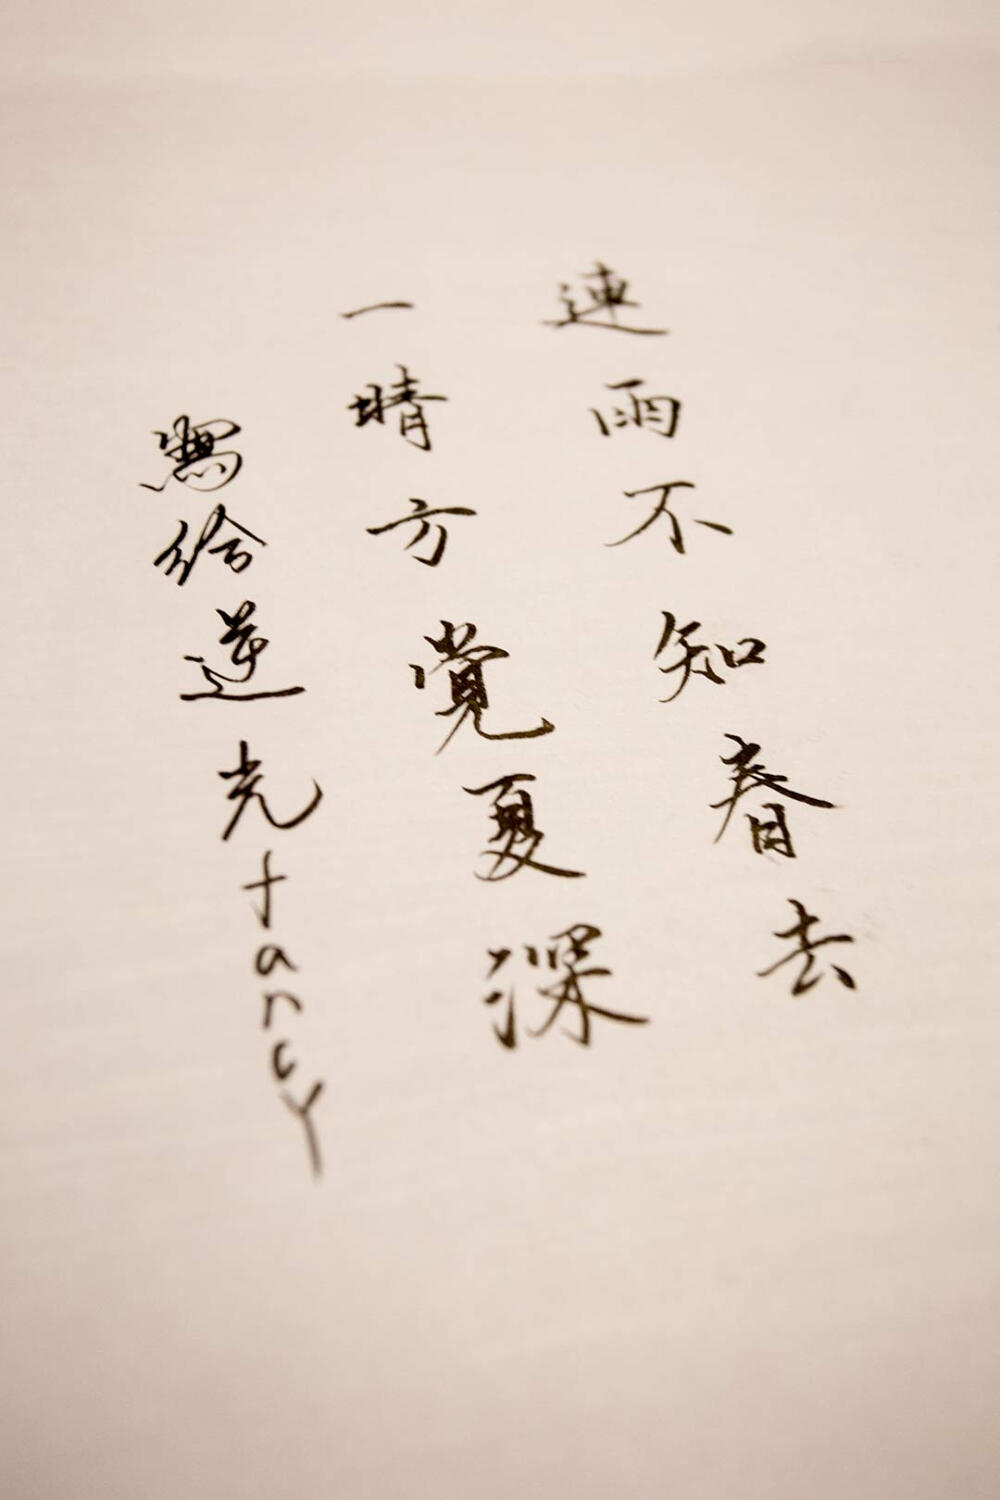 連雨不知春去
一晴方覺夏深
寫給逆光fancy